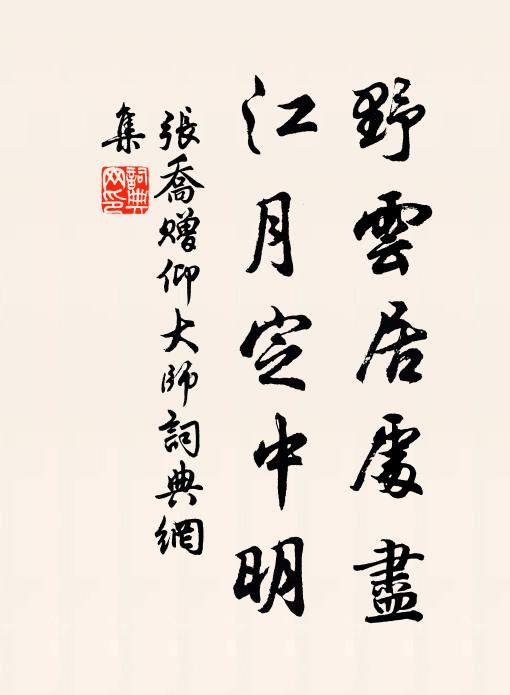 野雲居處盡
江月定中明
張喬贈仰大師詞典網
集
詞典
网印